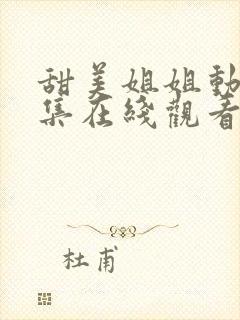 甜美姐姐動
集在綫觀看
杜甫